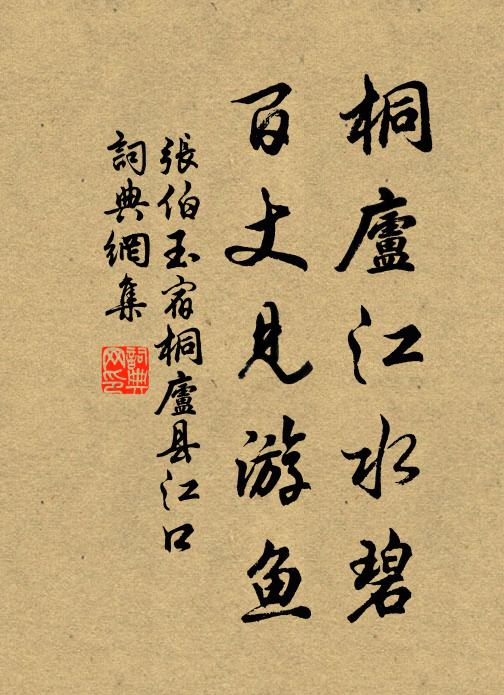 桐廬江水碧
百丈見游鱼
張伯玉宿桐廬县江口
詞典網集
詞典网印